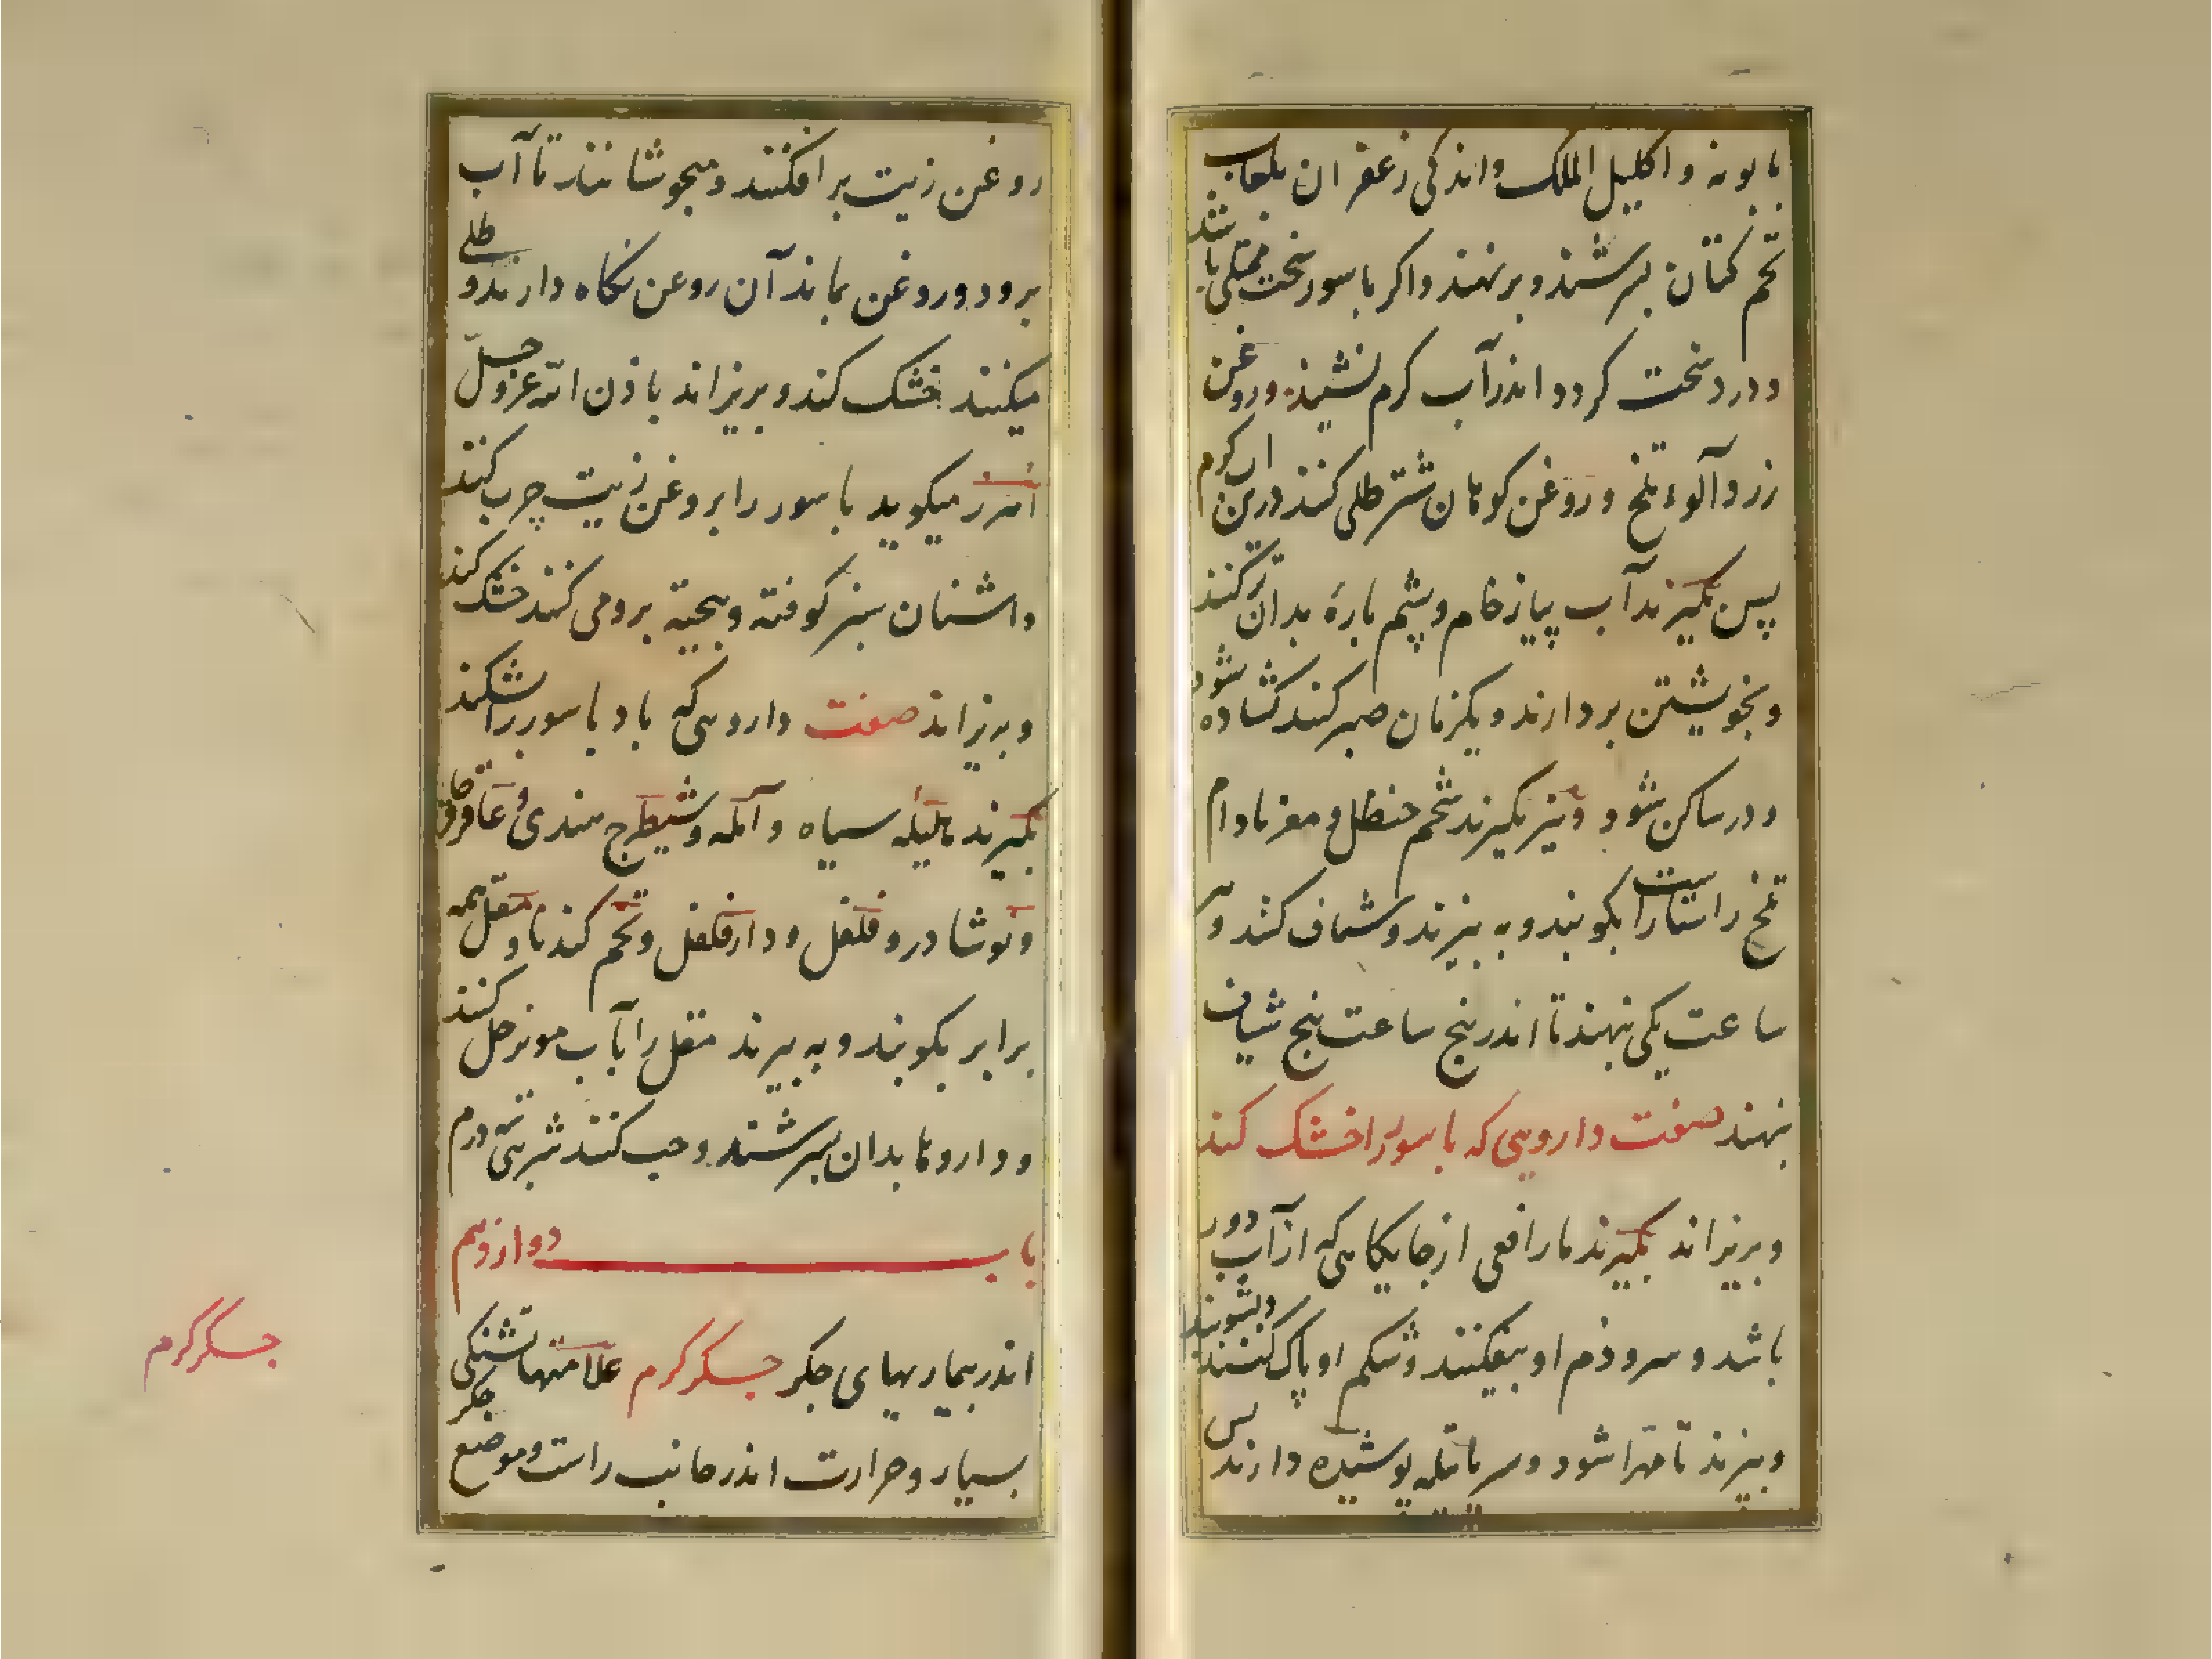 بابونه و اکلیل الملک و اندکی زعفران بلعاب
تخم کتان بسرشند و برنهند و اکر باسور سخت ممتلی باشد
و درد سخت کردد اندر آب کرم نشیند و روغن
زردآلوء تلخ و روغن کوهان شتر طلی کنند درین
پس بکیرند آب پیاز خام و پشم پارۀ بدان تر کنند
و بخویشتن بردارند و یکزمان صبر کنند کشاده شود
و درد ساکن شود و نیز بکیرند شحم حنظل و مغز بادام
تلخ راستاراست بکوبند و به بیزند و شیاف کنند و هر
ساعت یکی نهند تا اندر پنج ساعت پنج شیاف
بنهند صفت داروهی که باسور را خشک کند
و بریزاند بکیرند مار افعی از جایکاهی که از آب دور
باشد و سر و دم او بیفکنند و شکم او پاک کنند و بشویند
و بپزند تا مهرا شود و سر پاتیله پوشیده دارند پس
روغن زیت برافکنند و میجوشانند تا آب
برود و روغن بماند آن روغن نکاه دارند و طلی
میکنند خشک کند و بریزاند باذن الله عز و جل
میکوید باسور را بروغن زیت چرب کنند
و اشنان سبز کوفته و بیخته برو می کنند خشک کند
و بریزاند صفت داروهی که باد باسور را بشکند
بکیرند هلیله سیاه و آمله و شیطرج هندی و عاقرقرحا
و نوشادر و فلفل و دارفلفل و تخم کندنا و مقل همه
برابر بکوبند و به بیزند مقل را بآب مویز حل کنند
و داروها بدان بسرشند و حب کنند شربتی درم
باب دوازدهم
اندر بیماریهای جکر جکر کرم علامتها تشنکی
بسیار و حرارت اندر جانب راست و موضع جکر
جکر کرم